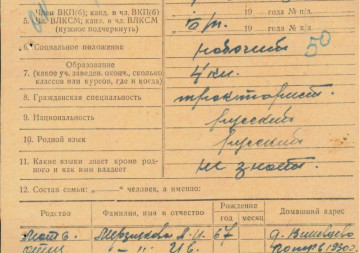 Чл. ВКП(б); канд. в чл. ВКП(б)
19 года № п/д.
5. Чл. ВЛКСМ; канд. в чл. ВЛКСМ б/п.
(нужное подчеркнуть) 19 года № п/д.
6. Социальное положение рабочий 50
7. Образование
(какое уч. заведен. оконч., сколько 4 кл.
классов или курсов, где и когда)
8. Гражданская специальность тракторист.
9. Национальность русский
10. Родной язык русский
11. Какие языки знает кроме род-
ного и как ими владеет не знает.
12. Состав семьи: „ “ человек, а именно:
Родство Фамилия, имя и отчество Рождение Домашний адрес
год месяц
мать 67 д.
отец — " — умер в 1930 г.